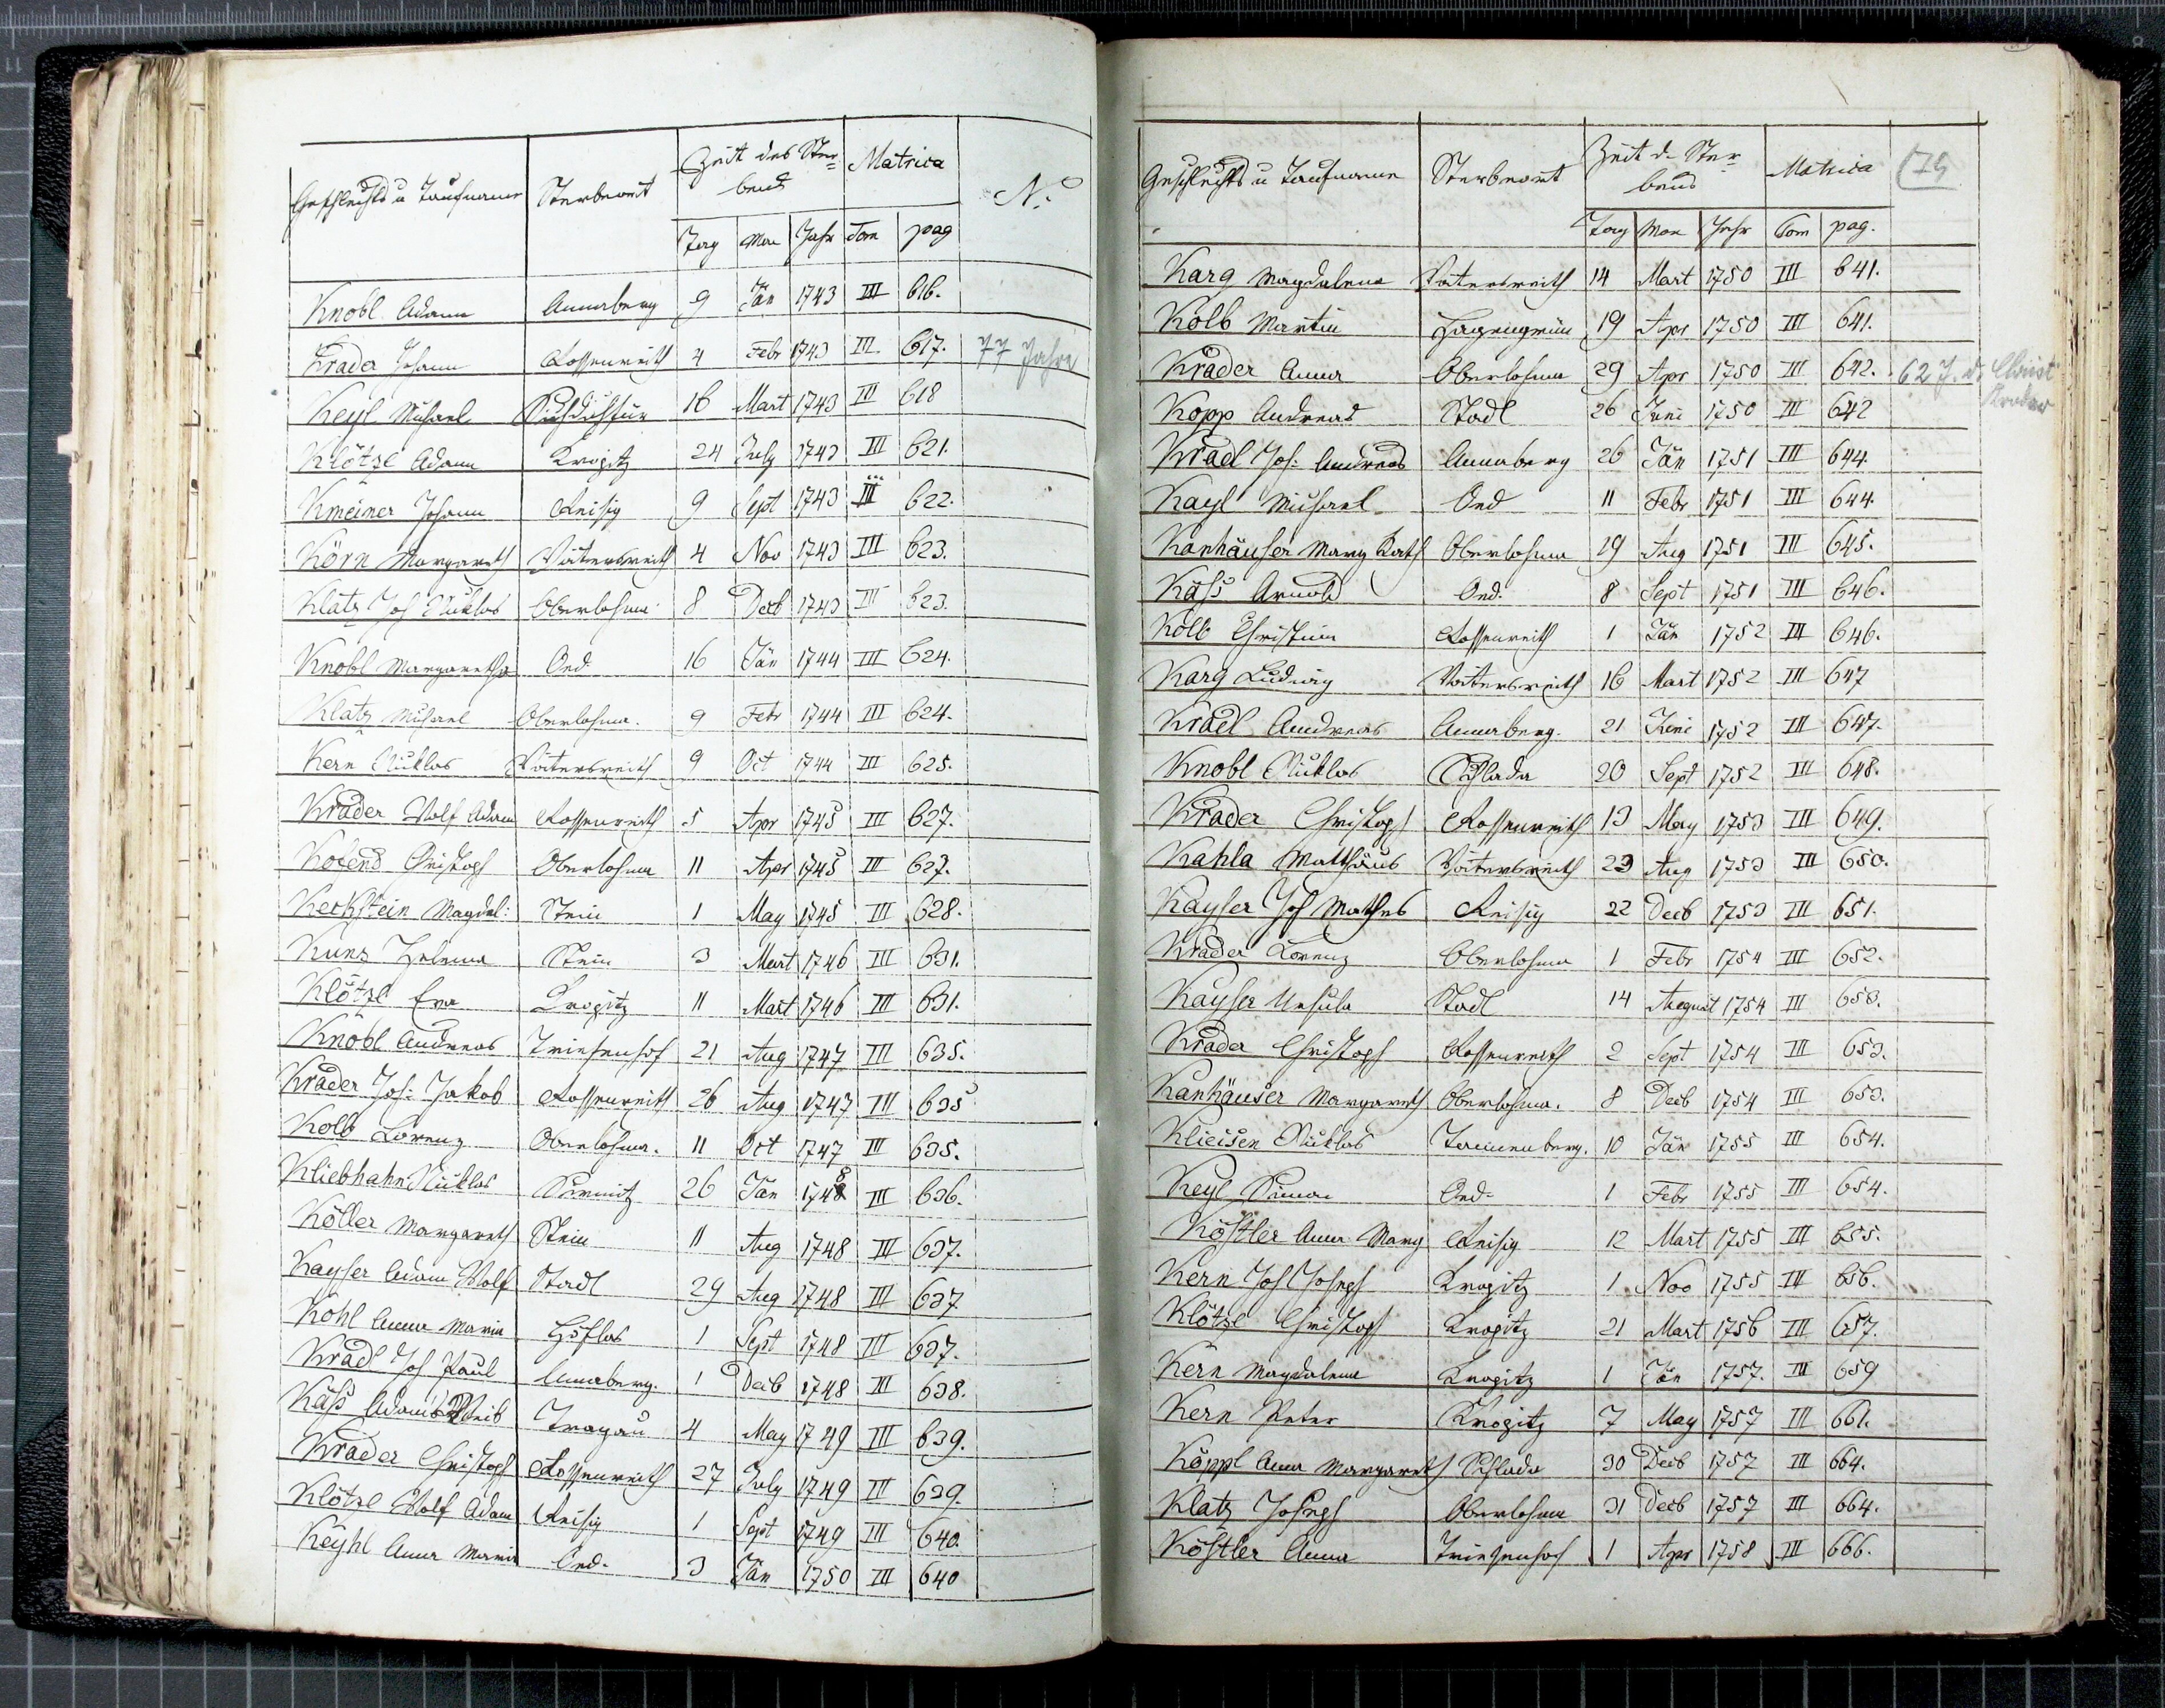 Geschlechts u Taufname Sterbeort Zeit des Ster= Matrica
bens N:
Tag Mon Jahr Tom pag
Knobl Adam Annaberg 9 Jän 1743 III 616.
Krader Johann Rossenreith 4 Febr 1743 III 617. 77 Jahre
Keyl Michael 16 Mart 1743 III 618
Klötzl Adam Krogitz 24 July 1743 III 621.
Kmeiner Johann Reisig 9 Sept 1743 III 622.
Körn Margareth Voitersreith 4 Nov 1743 III 623.
Klatz Joh Niklas Oberlohma 8 Decb 1743 III 623.
Knobl Margaretha Oed 16 Jän 1744 III 624.
Klatz Michael Oberlohma. 9 Febr 1744 III 624.
Kern Niklas Voitersreith 9 Oct 1744 III 625.
Krader Wolf Adam Rossenreith 5 Apr 1745 III 627.
Christoph Oberlohma 11 Apr 1745 III 627.
Keckstein Magdal: Stein 1 May 1745 III 628.
Kunz Helena Stein 3 Mart 1746 III 631.
Klötzl Eva Krogitz 11 Mart 1746 III 631.
Knobl Andreas Triesenhof 21 Aug 1747 III 635.
Krader Joh: Jakob Rossenreith 26 Aug 1747 III 635
Kolb Lorenz Oberlohma. 11 Oct 1747 III 635.
Kliebhahn Niklas Sirmitz 26 Jän 1748 III 636.
Köller Margareth Stein 11 Aug 1748 III 637.
Kayser Adam Wolf Stadl 29 Aug 1748 III 637
Kohl Anna Maria Höflas 1 Sept 1748 III 637.
Kradl Joh Paul Annaberg. 1 Decb 1748 III 638.
Käss Adams Weib Tragau 4 May 1749 III 639.
Krader Christoph Rossenreith 27 July 1749 III 639.
Klötzl Wolf Adam Reisig 1 Sept 1749 III 640.
Keyhl Anna Maria Oed. 3 Jän 1750 III 640
Geschlechts u Taufname Sterbeort Zeit d. Ster= Matrica 179
bens
Tag Mon Jahr Tom pag.
Karg Magdalena Voitersreith 14 Mart 1750 III 641.
Kolb Martin Hagengrün 19 Apr 1750 III 641.
Krader Anna Oberlohma 29 Apr 1750 III 642. 62 J. d. Christ
Krader
Kopp Andreas Stadl 26 Juni 1750 III 642
Kradl Joh: Andreas Annaberg 26 Jän 1751 III 644.
Kayl Michael Oed 11 Febr 1751 III 644.
Kanhäuser Marg Kath Oberlohma 29 Aug 1751 III 645.
Käss Arnold Oed. 8 Sept 1751 III 646.
Kolb Christian Rossenreith 1 Jän 1752 III 646.
Karg Ludwig Voitersreith 16 Mart 1752 III 647
Kradl Andreas Annaberg. 21 Juni 1752 III 647.
Knobl Niklas Schlada 20 Sept 1752 III 648.
Krader Christoph Rossenreith 13 May 1753 III 649.
Kahla Matthäus Voitersreith 23 Aug 1753 III 650.
Kayser Joh Mathes Reisig 22 Decb 1753 III 651.
Krader Lorenz Oberlohma 1 Febr 1754 III 652.
Kayser Ursula Stadl 14 August 1754 III 653.
Krader Christoph Rossenreith 2 Sept 1754 III 653.
Kanhäuser Margareth Oberlohma. 8 Decb 1754 III 653.
Klieisen Niklas Tannenberg. 10 Jän 1755 III 654.
Keyl Simon Oed. 1 Febr 1755 III 654.
Köstler Anna Marg Reisig 12 Mart 1755 III 655.
Kern Joh Joseph Krogitz 1 Nov 1755 III 656.
Klötzl Christoph Krogitz 21 Mart 1756 III 657.
Kern Magdalena Krogitz 1 Jän 1757. III 659
Kern Peter Krogitz 7 May 1757 III 661.
Köppl Anna Margareth Schlada 30 Decb 1757 III 664.
Klatz Joseph Oberlohma 31 Decb 1757 III 664.
Köstler Anna Triesenhof 1 Apr 1758 III 666.